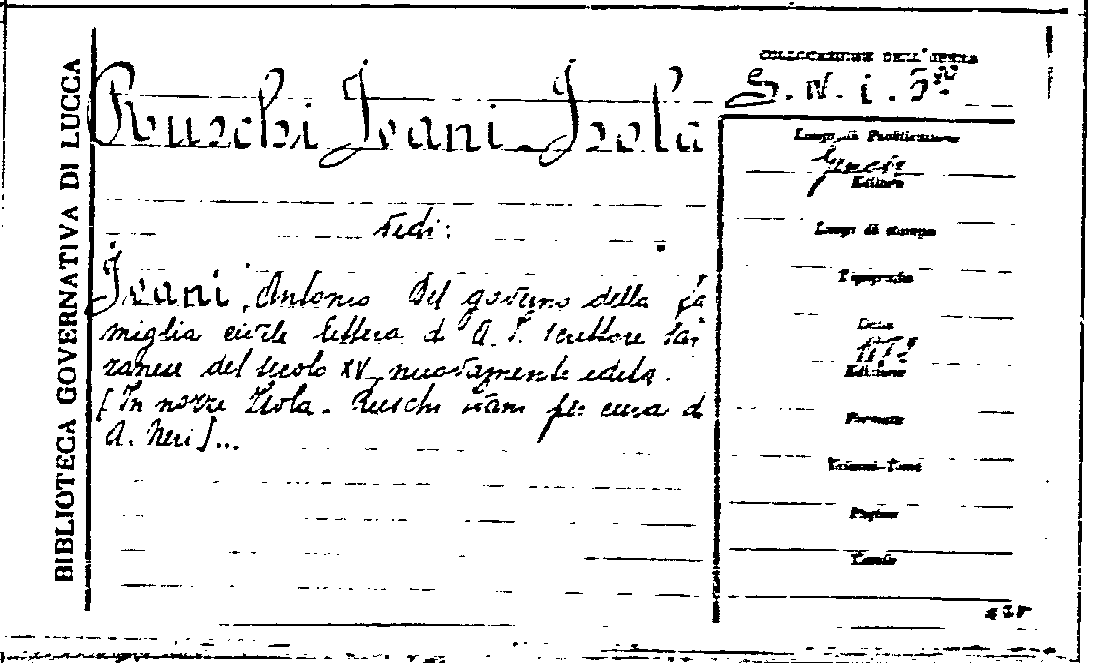 BIBLIOTECA GOVERNATIVA DI LUCCA
Ruschi Ivani - Isola
vedi:
Ivani, Antonio Del governo della fa
miglia civile lettera di A. I. scrittore Sar
zanese del secolo XV nuovamente edita.
[In nozze Isola - Ruschi Ivani per cura di
A. Neri]...
COLLOCAZIONE DELL'OPERA
S. N. i. 5
Luogo di Pubblicazione
Genova
Editore
Luogo di stampa
Tipografia
Data
Edizione
Formato
Volumi-Tomi
Pagine
Tavole